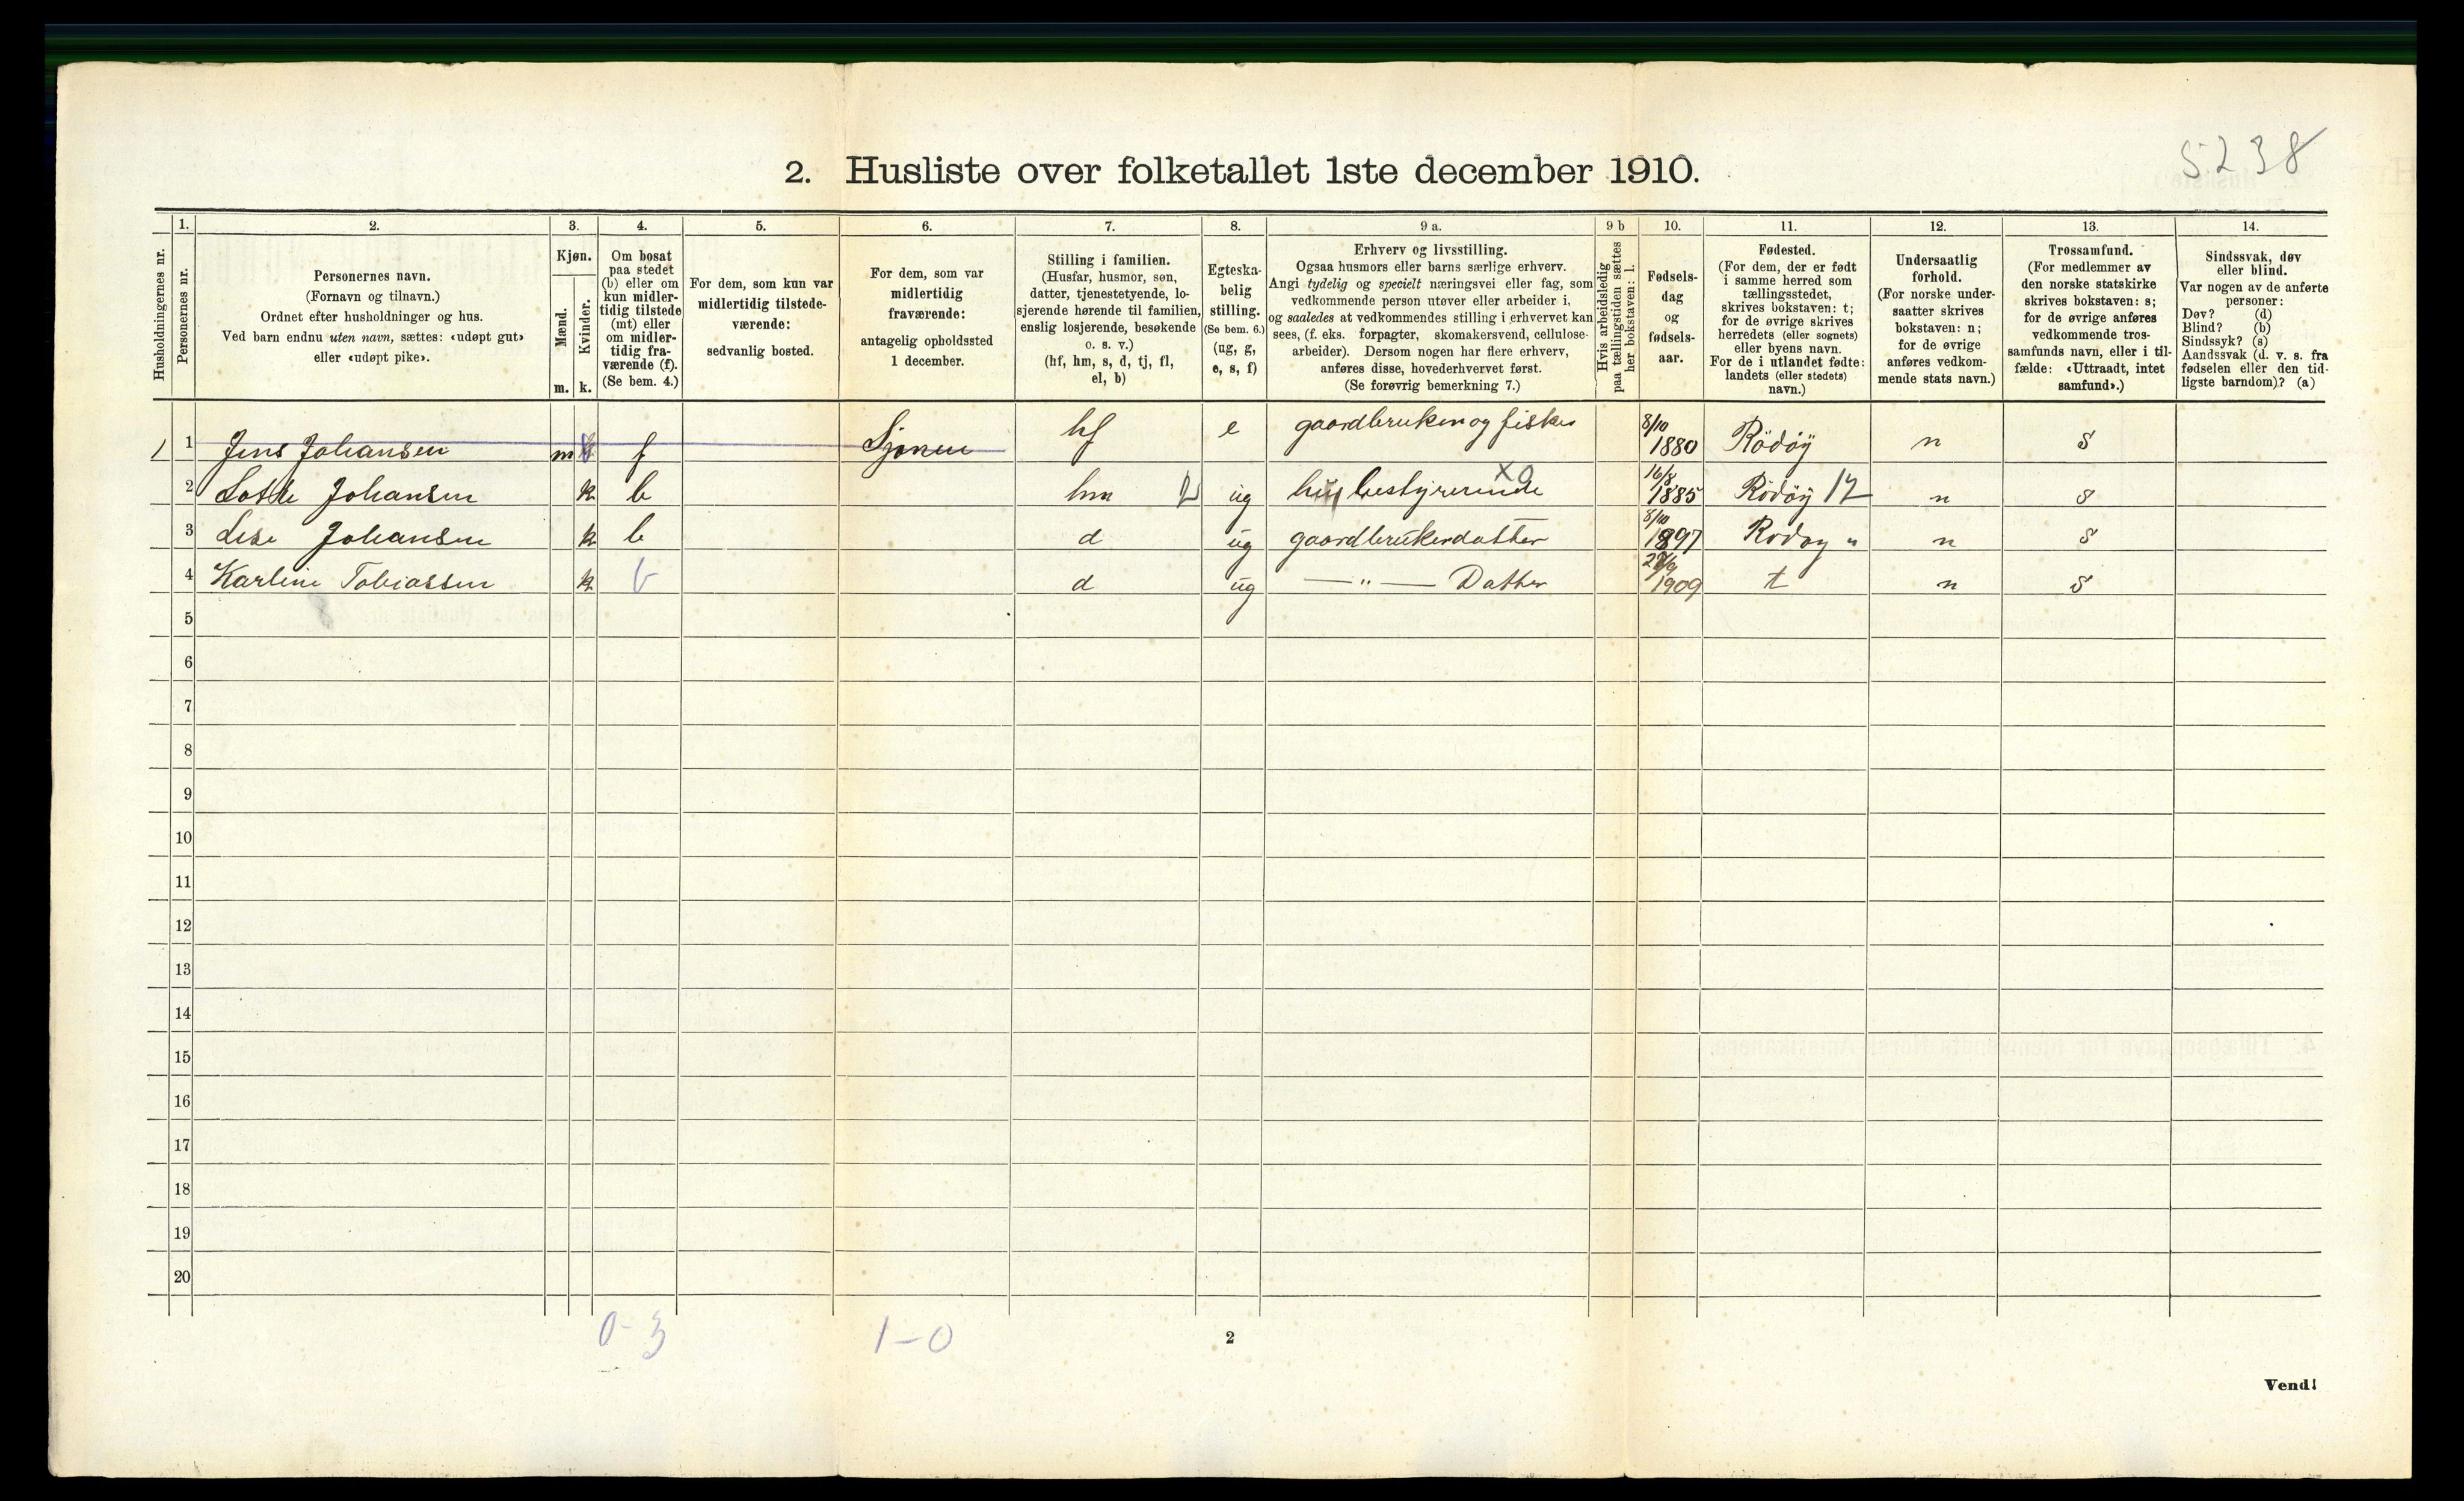 5238
2. Husliste over folketallet 1ste december 1910.
1. 2. 3. 4. 5. 6. 7. 8. 9 a. 9 b 10. 11. 12. 13. 14.
Husholdningernes nr.
Personernes nr.
Personernes navn.
(Fornavn og tilnavn.)
Ordnet efter husholdninger og hus.
Ved barn endnu uten navn, sættes: «udøpt gut»
eller «udøpt pike».
Kjøn.
Mænd.
m.
Kvinder.
k.
Om bosat
paa stedet
(b) eller om
kun midler-
tidig tilstede
(mt) eller
om midler-
tidig fra-
værende (f).
(Se bem. 4.)
For dem, som kun var
midlertidig tilstede-
værende:
sedvanlig bosted.
For dem, som var
midlertidig
fraværende:
antagelig opholdssted
1 december.
Stilling i familien.
(Husfar, husmor, søn,
datter, tjenestetyende, lo-
sjerende hørende til familien,
enslig losjerende, besøkende
o. s. v.)
(hf, hm, s, d, tj, fl,
el, b)
Egteska-
belig
stilling.
(Se bem. 6.)
(ug, g,
e, s, f)
Erhverv og livsstilling.
Ogsaa husmors eller barns særlige erhverv.
Angi tydelig og specielt næringsvei eller fag, som
vedkommende person utøver eller arbeider i,
og saaledes at vedkommendes stilling i erhvervet kan
sees, (f. eks. forpagter, skomakersvend, cellulose-
arbeider). Dersom nogen har flere erhverv,
anføres disse, hovederhvervet først.
(Se forøvrig bemerkning 7.)
Hvis arbeidsledig
paa tællingstiden sættes
her bokstaven: l.
Fødsels-
dag
og
fødsels-
aar.
Fødested.
(For dem, der er født
i samme herred som
tællingsstedet,
skrives bokstaven: t;
for de øvrige skrives
herredets (eller sognets)
eller byens navn.
For de i utlandet fødte:
landets (eller stedets)
navn.)
Undersaatlig
forhold.
(For norske under-
saatter skrives
bokstaven: n;
for de øvrige
anføres vedkom-
mende stats navn.)
Trossamfund.
(For medlemmer av
den norske statskirke
skrives bokstaven: s;
for de øvrige anføres
vedkommende tros-
samfunds navn, eller i til-
fælde: «Uttraadt, intet
samfund».)
Sindssvak, døv
eller blind.
Var nogen av de anførte
personer:
Døv? (d)
Blind? (b)
Sindssyk? (s)
Aandssvak (d. v. s. fra
fødselen eller den tid-
ligste barndom)? (a)
1 1 Jens Johansen m f Sjonen hf e gaardbruker og fisker 8/10 1880 Rödöy n s
2 Lotte Johansen k b hm 2 ug husbestyrerinde X0 16/8 1885 Rödöy 17 n s
3 Lise Johansen k b d ug gaardbrukerdatter 8/10 1897 Rodoy " n s
4 Karline Tobiassen k b d ug — " — Datter 1909 t n s
5
6
7
8
9
10
11
12
13
14
15
16
17
18
19
20
0-3 1-0
2
Vend!